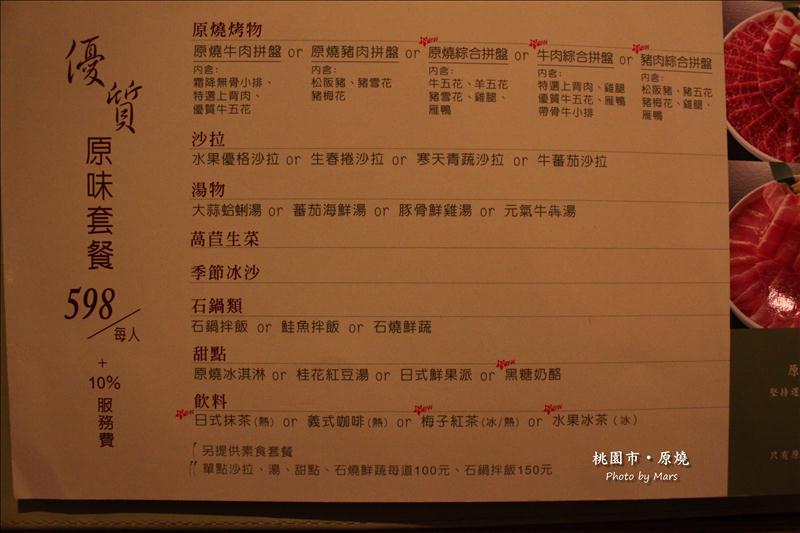 優質
原味套餐
598/每人
+
10%
服務費
原燒烤物
原燒牛肉拼盤 or 原燒豬肉拼盤 or 原燒綜合拼盤 or 牛肉綜合拼盤 or 豬肉綜合拼盤
內含:
霜降無骨小排、
特選上背肉、
優質牛五花
內含:
松阪豬、豬雪花
豬梅花
內含:
牛五花、羊五花
豬雪花、雞腿、
雁鴨
內含:
特選上背肉、雞腿
優質牛五花、雁鴨
帶骨牛小排
內含:
松阪豬、豬五花
豬梅花、雞腿、
雁鴨
沙拉
水果優格沙拉 or 生春捲沙拉 or 寒天青蔬沙拉 or 牛蕃茄沙拉
湯物
大蒜蛤蜊湯 or 蕃茄海鮮湯 or 豚骨鮮雞湯 or 元氣牛犇湯
萵苣生菜
季節冰沙
石鍋類
石鍋拌飯 or 鮭魚拌飯 or 石燒鮮蔬
甜點
原燒冰淇淋 or 桂花紅豆湯 or 日式鮮果派 or 黑糖奶酪
飲料
日式抹茶(熱) or 義式咖啡(熱) or 梅子紅茶(冰/熱) or 水果冰茶(冰)
另提供素食套餐
單點沙拉、湯、甜點、石燒鮮蔬每道100元、石鍋拌飯150元
原
堅持選
只有原
桃園市·原燒
Photo by Mars